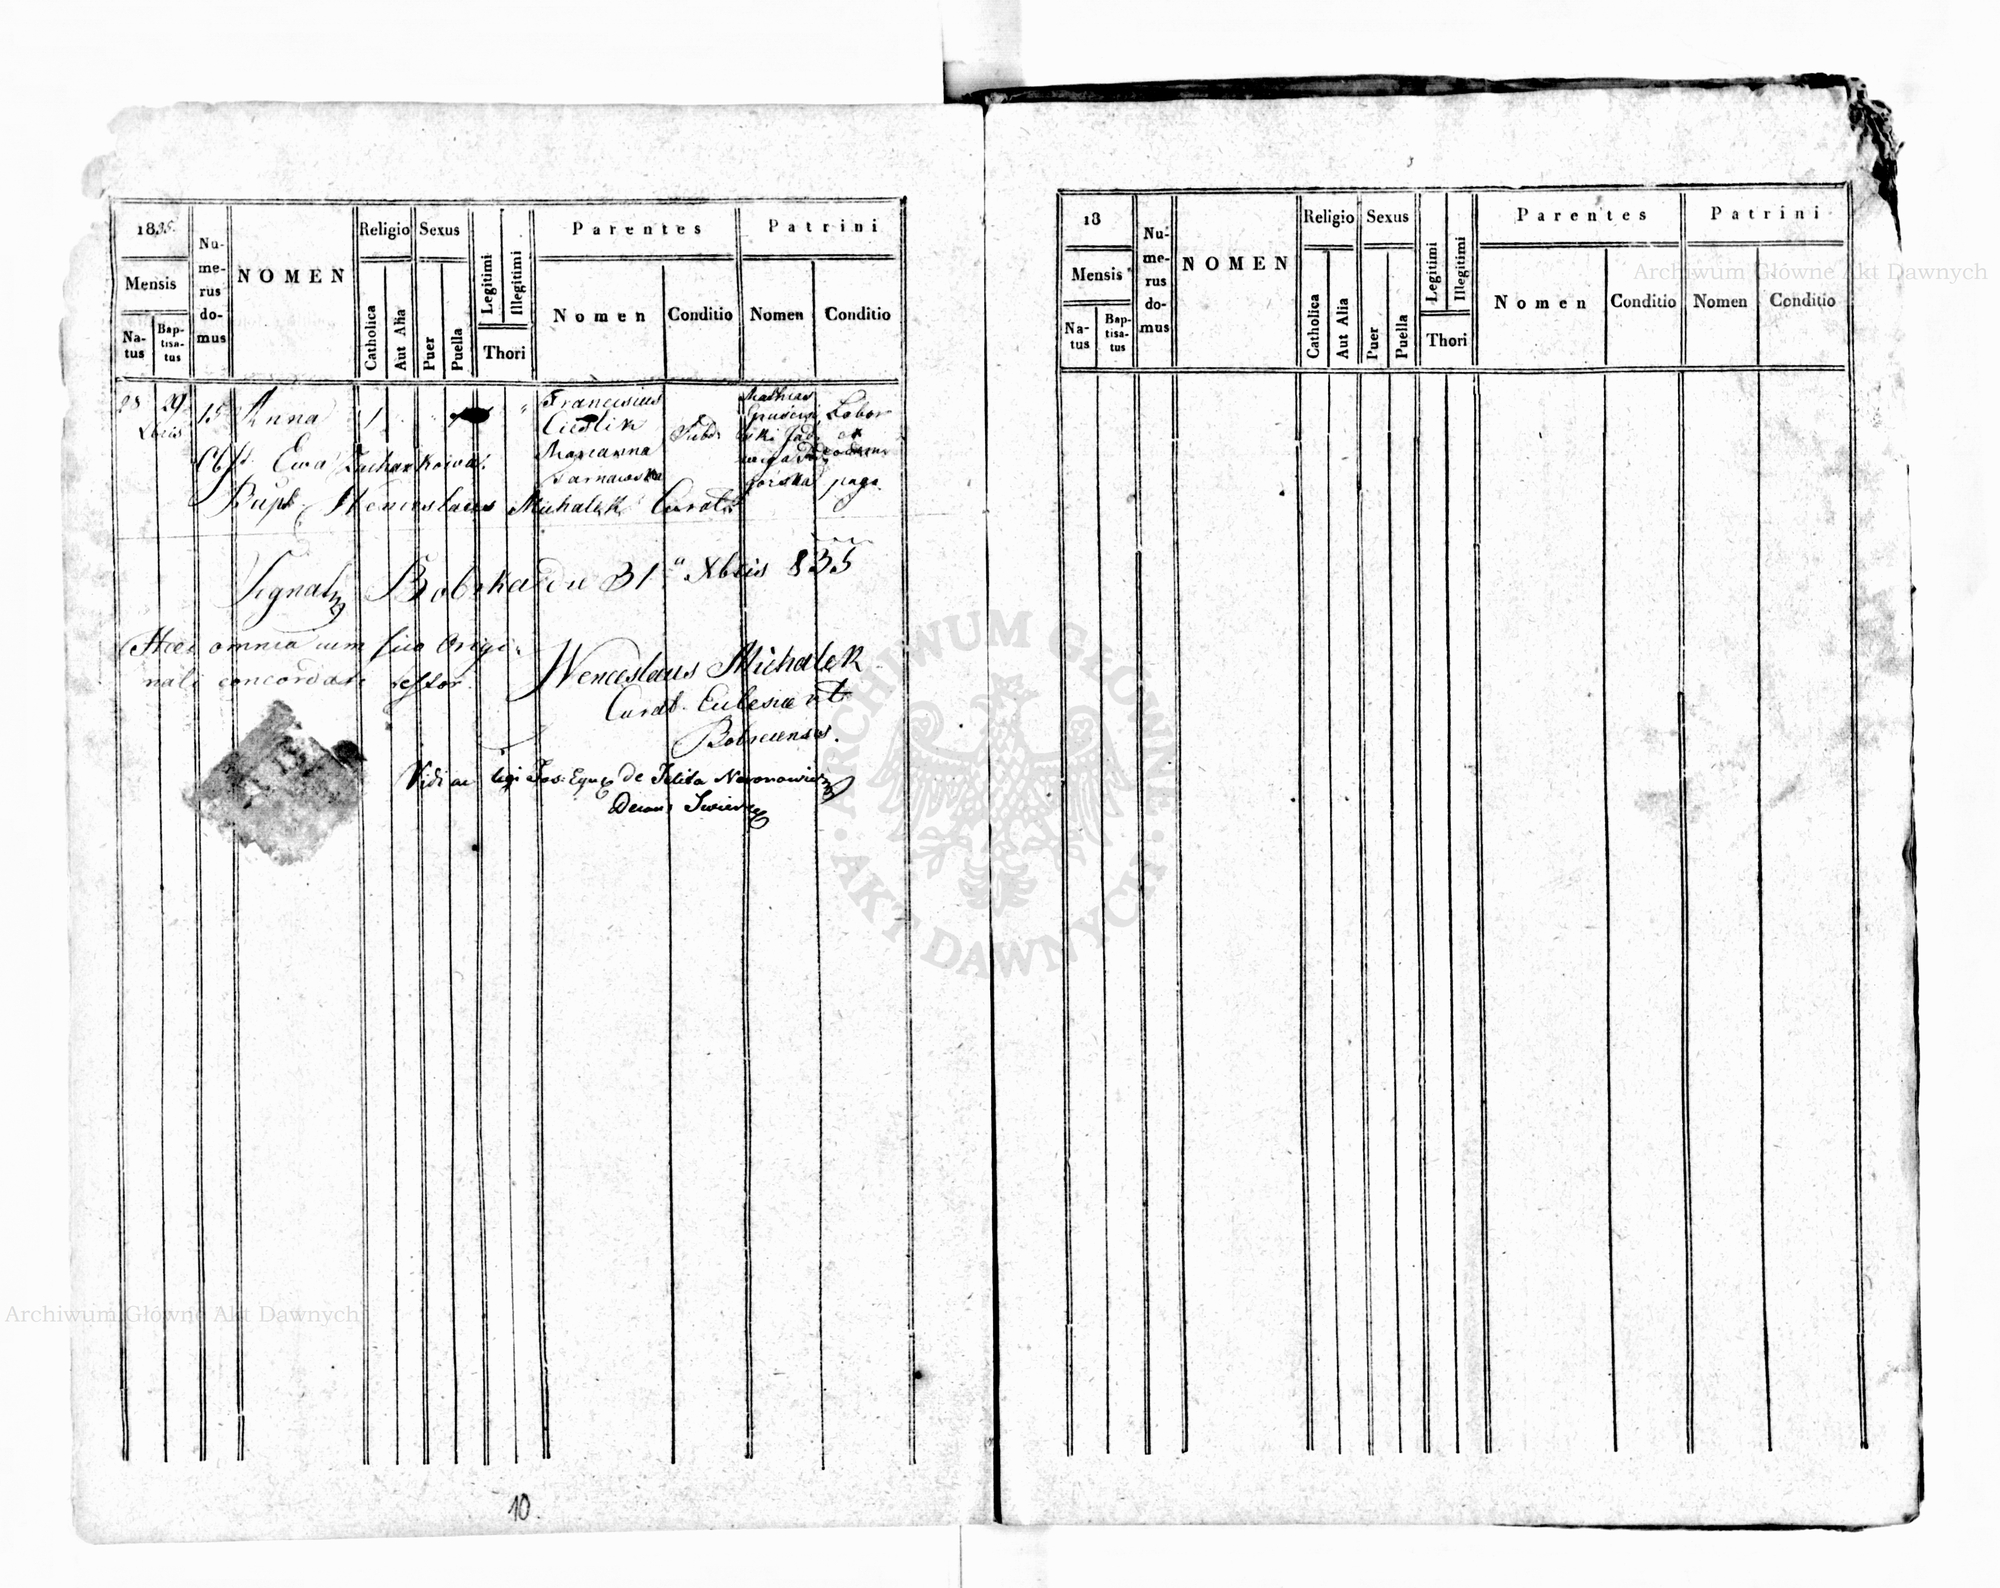 1835.
Mensis
Natus
Baptisatus
Numerus domus
NOMEN
Religio
Catholica
Aut Alia
Sexus
Puer
Puella
Legitimi
Illegitimi
Thori
Parentes
Nomen
Conditio
Patrini
Nomen
Conditio
28 29 15 Anna 1 Franciscus Mathias
Xbris Cieslik Labor
Marianna et
Obst. Ewa
Tarnawska gorska pago
Bapt. Wenceslaus Michalek Curat
Signat Bobrka die 31a Xbris 835
Haec omnia cum suo Origi-
nali concordare testor.
Wenceslaus Michalek
Curat. Ecclesiae
Bobrecensis.
Vidi ac legi Jos: Eques de
Decan
10.
18
Mensis
Natus
Baptisatus
Numerus domus
NOMEN
Religio
Catholica
Aut Alia
Sexus
Puer
Puella
Legitimi
Illegitimi
Thori
Parentes
Nomen
Conditio
Patrini
Nomen
Conditio
Archiwum Główne Akt Dawnych
ARCHIWUM GŁÓWNE
AKT DAWNYCH
Archiwum Główne Akt Dawnych